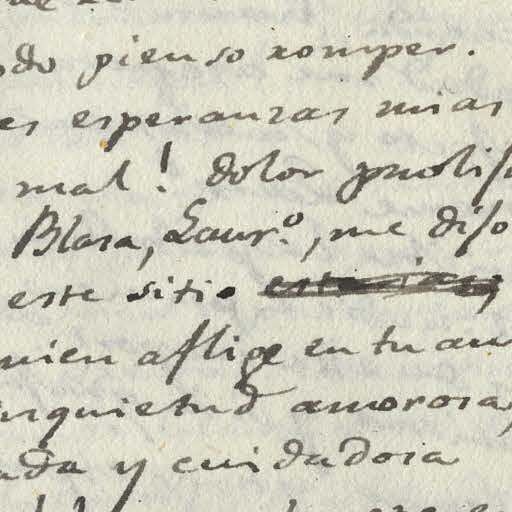 pienso romper.
es esperanzas mias
mal! dolor prolijo
Blasa, Laur.º, me dijo
este sitio
aflige en tu
inquietud amorosa,
ada y cuidadosa